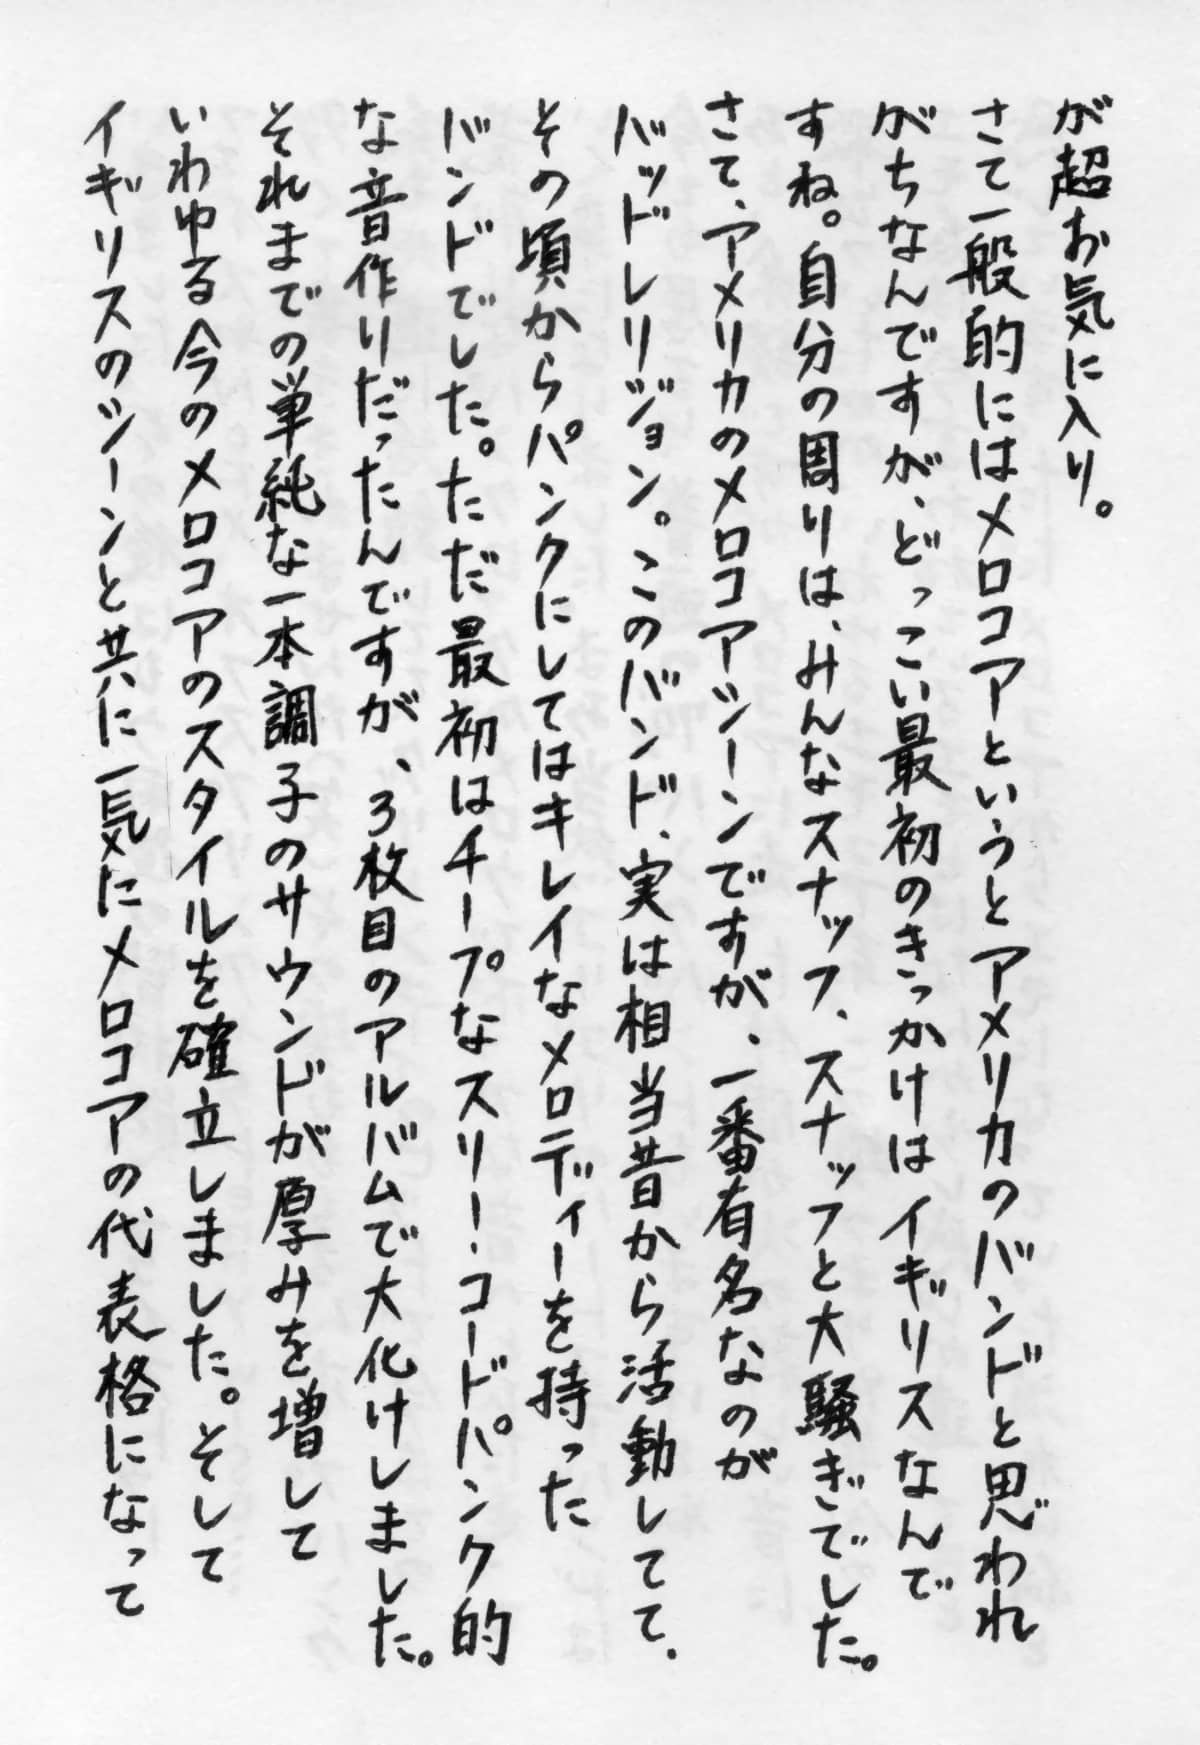 が超お気に入り。
さて一般的にはメロコアというとアメリカのバンドと思われ
がちなんですが、どっこい最初のきっかけはイギリスなんで
すね。自分の周りは、みんなスナッフ、スナッフと大騒ぎでした。
さて、アメリカのメロコアシーンですが、一番有名なのが
バッドレリジョン。このバンド、実は相当昔から活動してて、
その頃からパンクにしてはキレイなメロディーを持った
バンドでした。ただ最初はチープなスリー・コードパンク的
な音作りだったんですが、3枚目のアルバムで大化けしました。
それまでの単純な一本調子のサウンドが厚みを増して
いわゆる今のメロコアのスタイルを確立しました。そして
イギリスのシーンと共に一気にメロコアの代表格になって